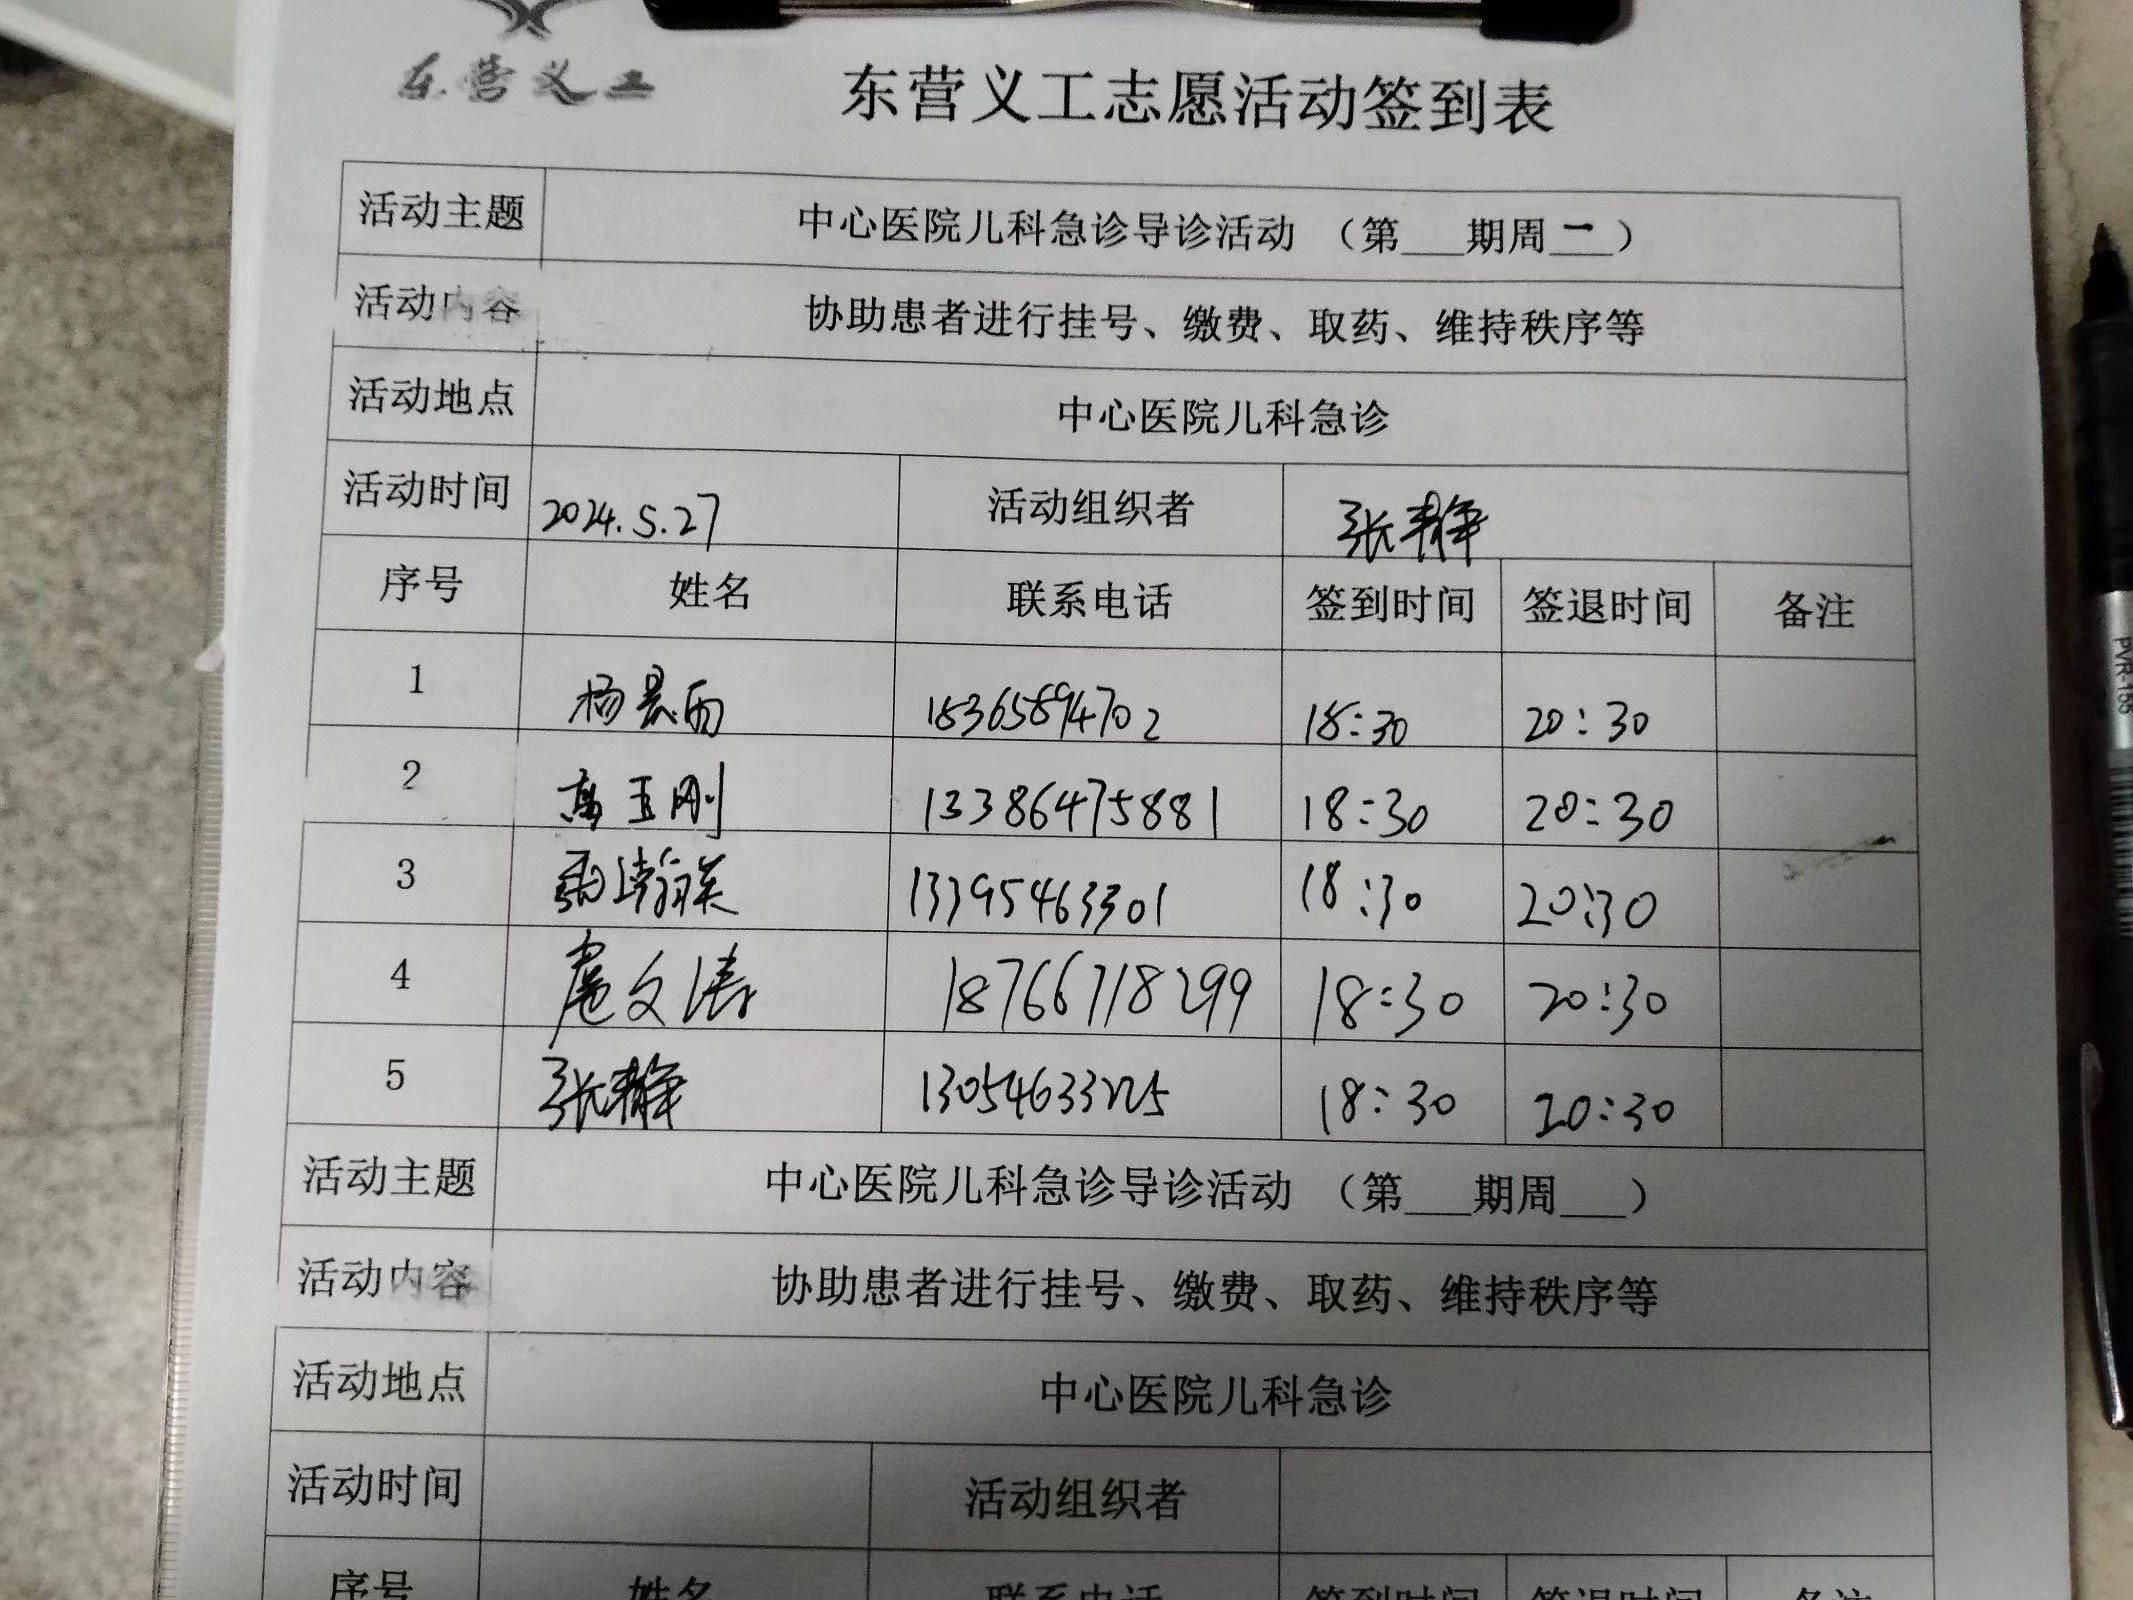 东营义工
东营义工志愿活动签到表
活动主题 中心医院儿科急诊导诊活动 （第___期周一）
活动内容 协助患者进行挂号、缴费、取药、维持秩序等
活动地点 中心医院儿科急诊
活动时间 2024.5.27 活动组织者 张静
序号 姓名 联系电话 签到时间 签退时间 备注
1 杨景雨 18365894702 18:30 20:30
2 高玉刚 13386475881 18:30 20:30
3 13395463301 18:30 20:30
4 庞文涛 18766718299 18:30 20:30
5 张静 13054633225 18:30 20:30
活动主题 中心医院儿科急诊导诊活动 （第___期周___）
活动内容 协助患者进行挂号、缴费、取药、维持秩序等
活动地点 中心医院儿科急诊
活动时间 活动组织者
序号 姓名 联系电话 签到时间 签退时间 备注
PVR-155